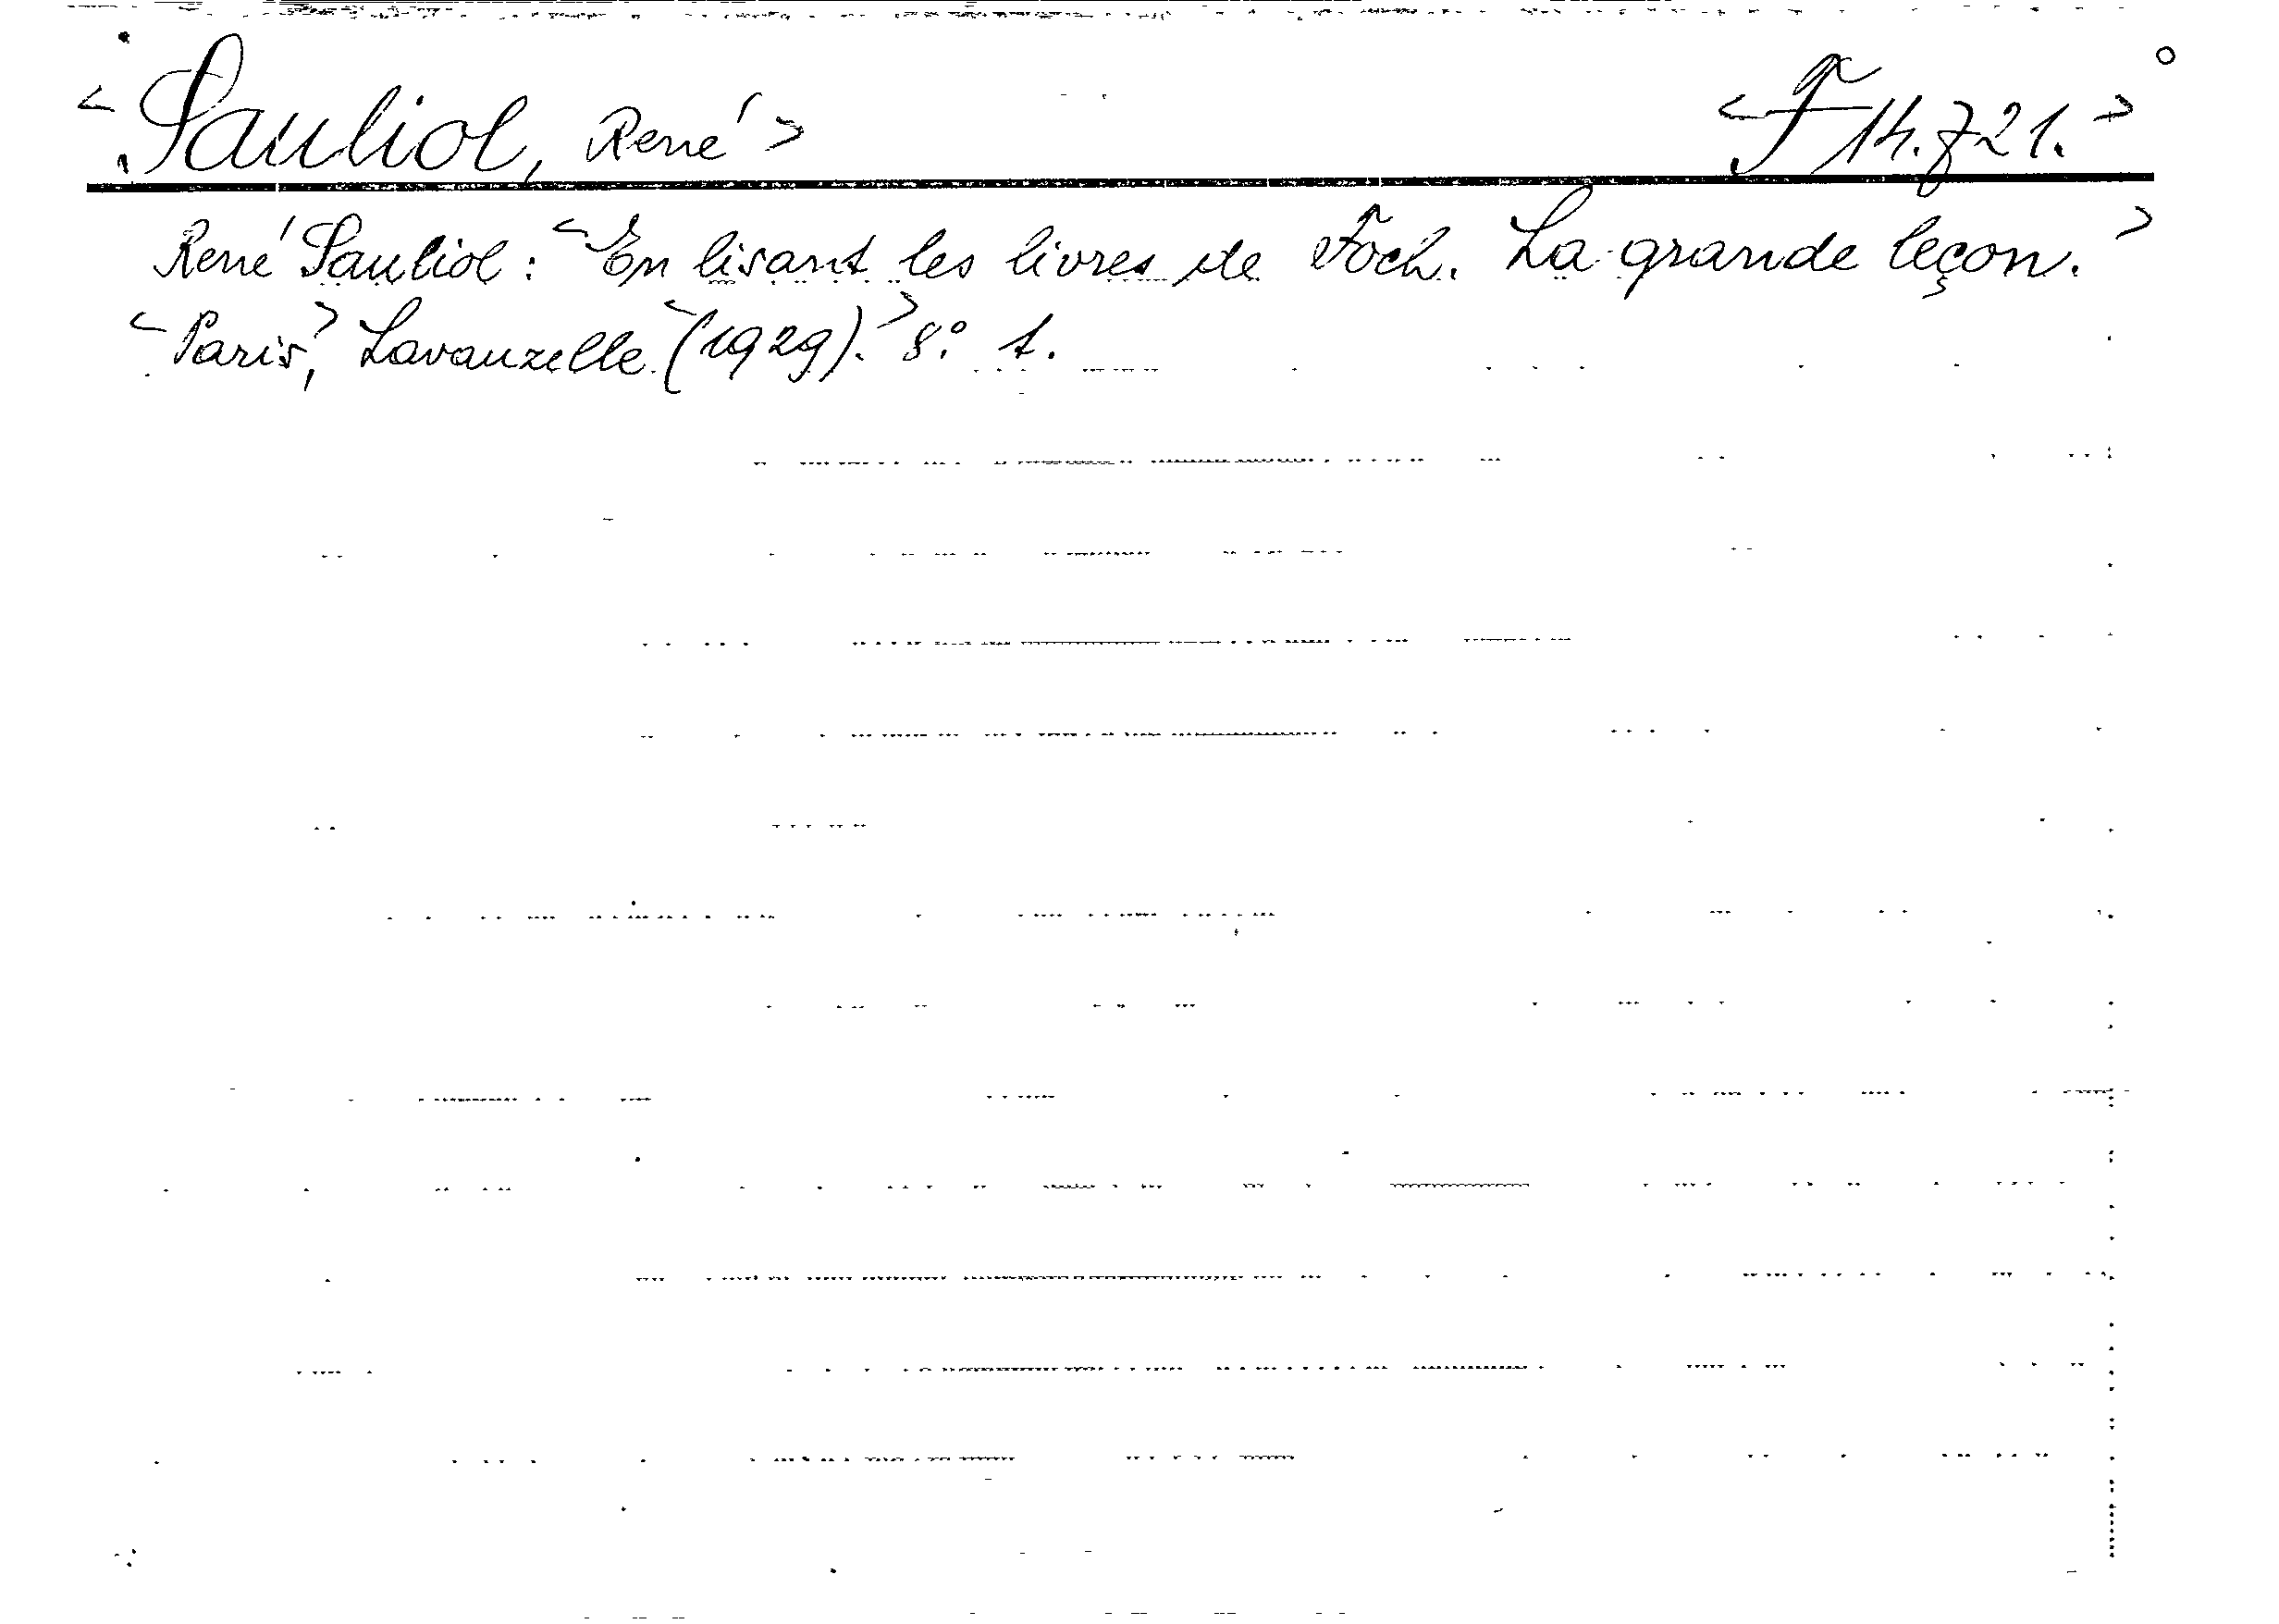 <Sauliol, René> <F 14.721.>
René Sauliol: <En lisant les livres de Foch. La grande leçon.>
<Paris,> Lavauzelle <(1929).> 8° 1.